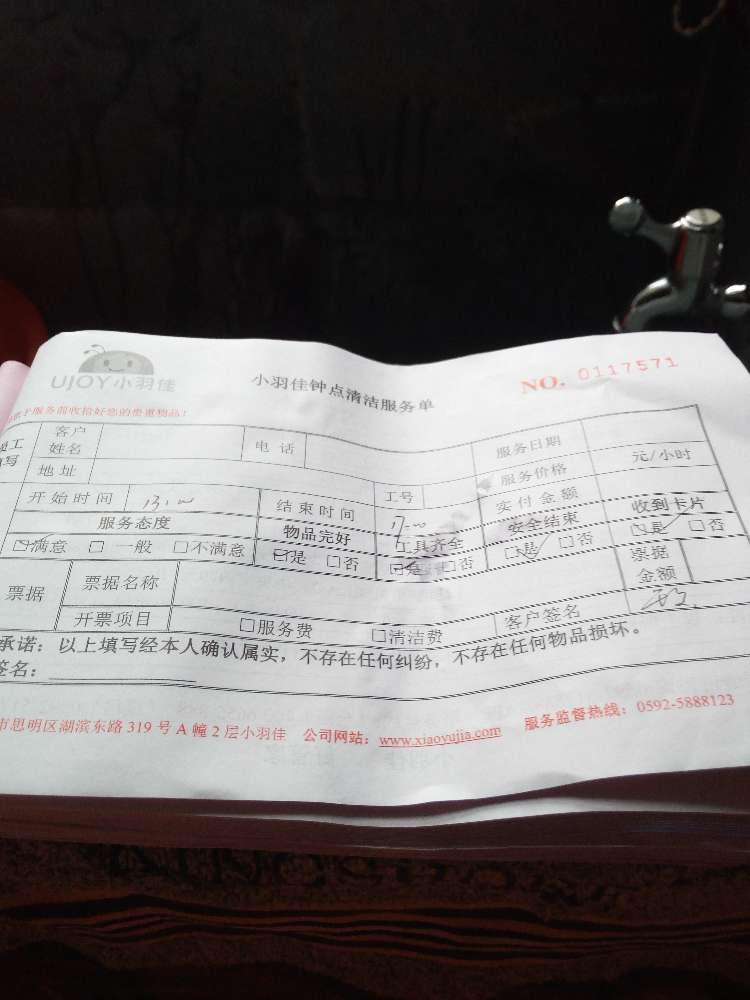 UJOY小羽佳
小羽佳钟点清洁服务单
NO. 0117571
服务前收拾好您的贵重物品！
客户姓名 电话 服务日期
地址 工号 服务价格 元/小时
开始时间 13:00 结束时间 17:00 实付金额
服务态度 物品完好 工具齐全 安全结束 收到卡片
☑满意 □一般 □不满意 ☑是 □否 ☑是 □否 ☑是 □否 ☑是 □否
票据 票据名称 票据金额
开票项目 □服务费 □清洁费 客户签名
承诺：以上填写经本人确认属实，不存在任何纠纷，不存在任何物品损坏。
签名：
市思明区湖滨东路 319 号 A 幢 2 层小羽佳 公司网站：www.xiaoyujia.com 服务监督热线：0592-5888123